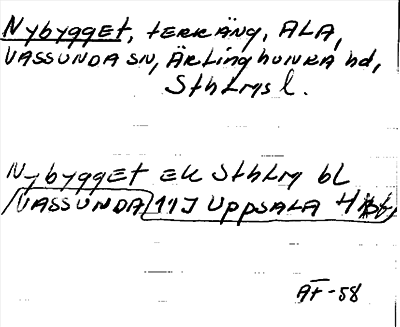 Nybygget, terräng, ALA,
VASSUNDA SN, Ärlinghundra hd,
Sthlms l.
Nybygget Ek Sthlm bl
VASSUNDA 11J Uppsala
AF-58